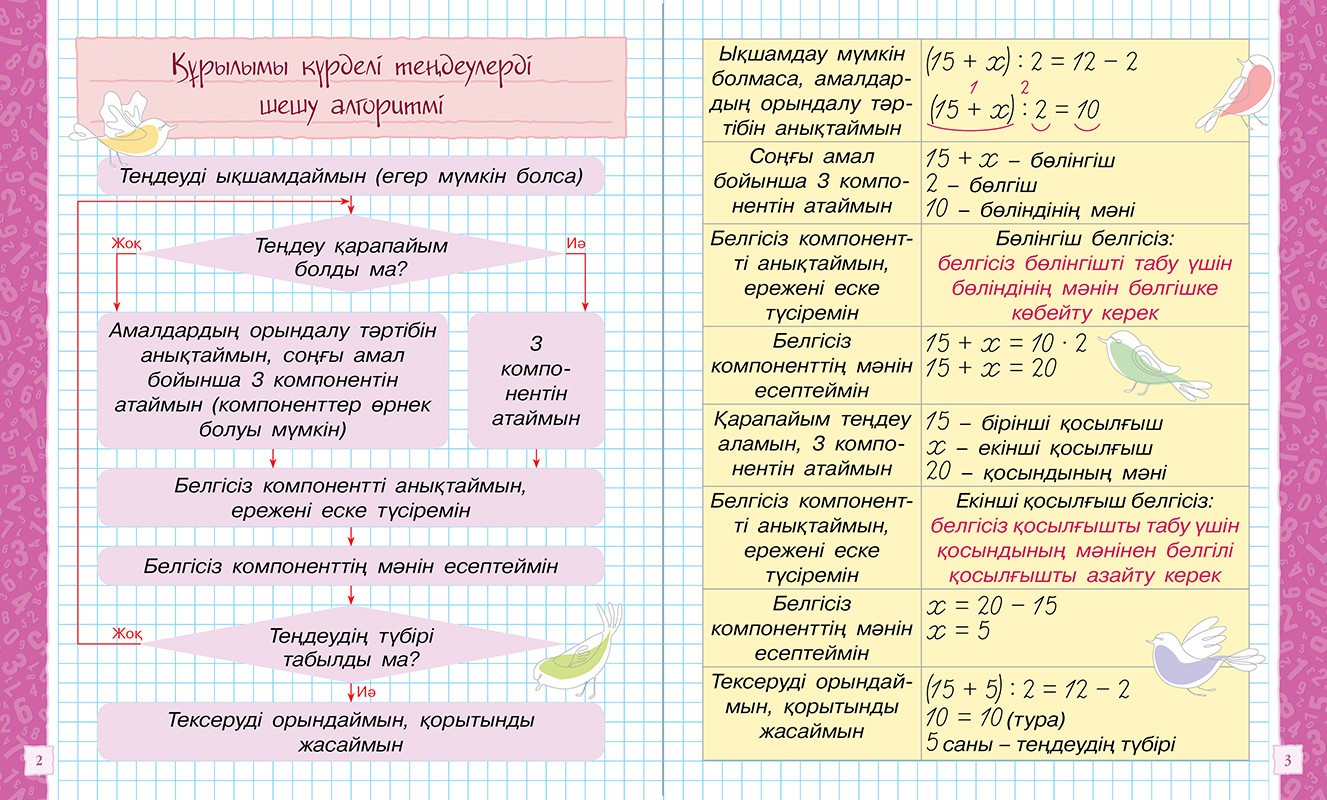 Құрылымы күрделі теңдеулерді
шешу алгоритмі
Теңдеуді ықшамдаймын (егер мүмкін болса)
Теңдеу қарапайым
болды ма?
Жоқ
Иә
Амалдардың орындалу тәртібін
анықтаймын, соңғы амал
бойынша 3 компонентін
атаймын (компоненттер өрнек
болуы мүмкін)
3
компо-
нентін
атаймын
Белгісіз компонентті анықтаймын,
ережені еске түсіремін
Белгісіз компоненттің мәнін есептеймін
Жоқ
Теңдеудің түбірі
табылды ма?
Иә
Тексеруді орындаймын, қорытынды
жасаймын
2
Ықшамдау мүмкін
болмаса, амалдар-
дың орындалу тәр-
тібін анықтаймын
(15 + x) : 2 = 12 − 2
1 2
(15 + x) : 2 = 10
Соңғы амал
бойынша 3 компо-
нентін атаймын
15 + x – бөлінгіш
2 – бөлгіш
10 – бөліндінің мәні
Белгісіз компонент-
ті анықтаймын,
ережені еске
түсіремін
Бөлінгіш белгісіз:
белгісіз бөлінгішті табу үшін
бөліндінің мәнін бөлгішке
көбейту керек
Белгісіз
компоненттің мәнін
есептеймін
15 + x = 10 · 2
15 + x = 20
Қарапайым теңдеу
аламын, 3 компо-
нентін атаймын
15 – бірінші қосылғыш
x – екінші қосылғыш
20 – қосындының мәні
Белгісіз компонент-
ті анықтаймын,
ережені еске
түсіремін
Екінші қосылғыш белгісіз:
белгісіз қосылғышты табу үшін
қосындының мәнінен белгілі
қосылғышты азайту керек
Белгісіз
компоненттің мәнін
есептеймін
x = 20 − 15
x = 5
Тексеруді орындай-
мын, қорытынды
жасаймын
(15 + 5) : 2 = 12 − 2
10 = 10 (тура)
5 саны – теңдеудің түбірі
3